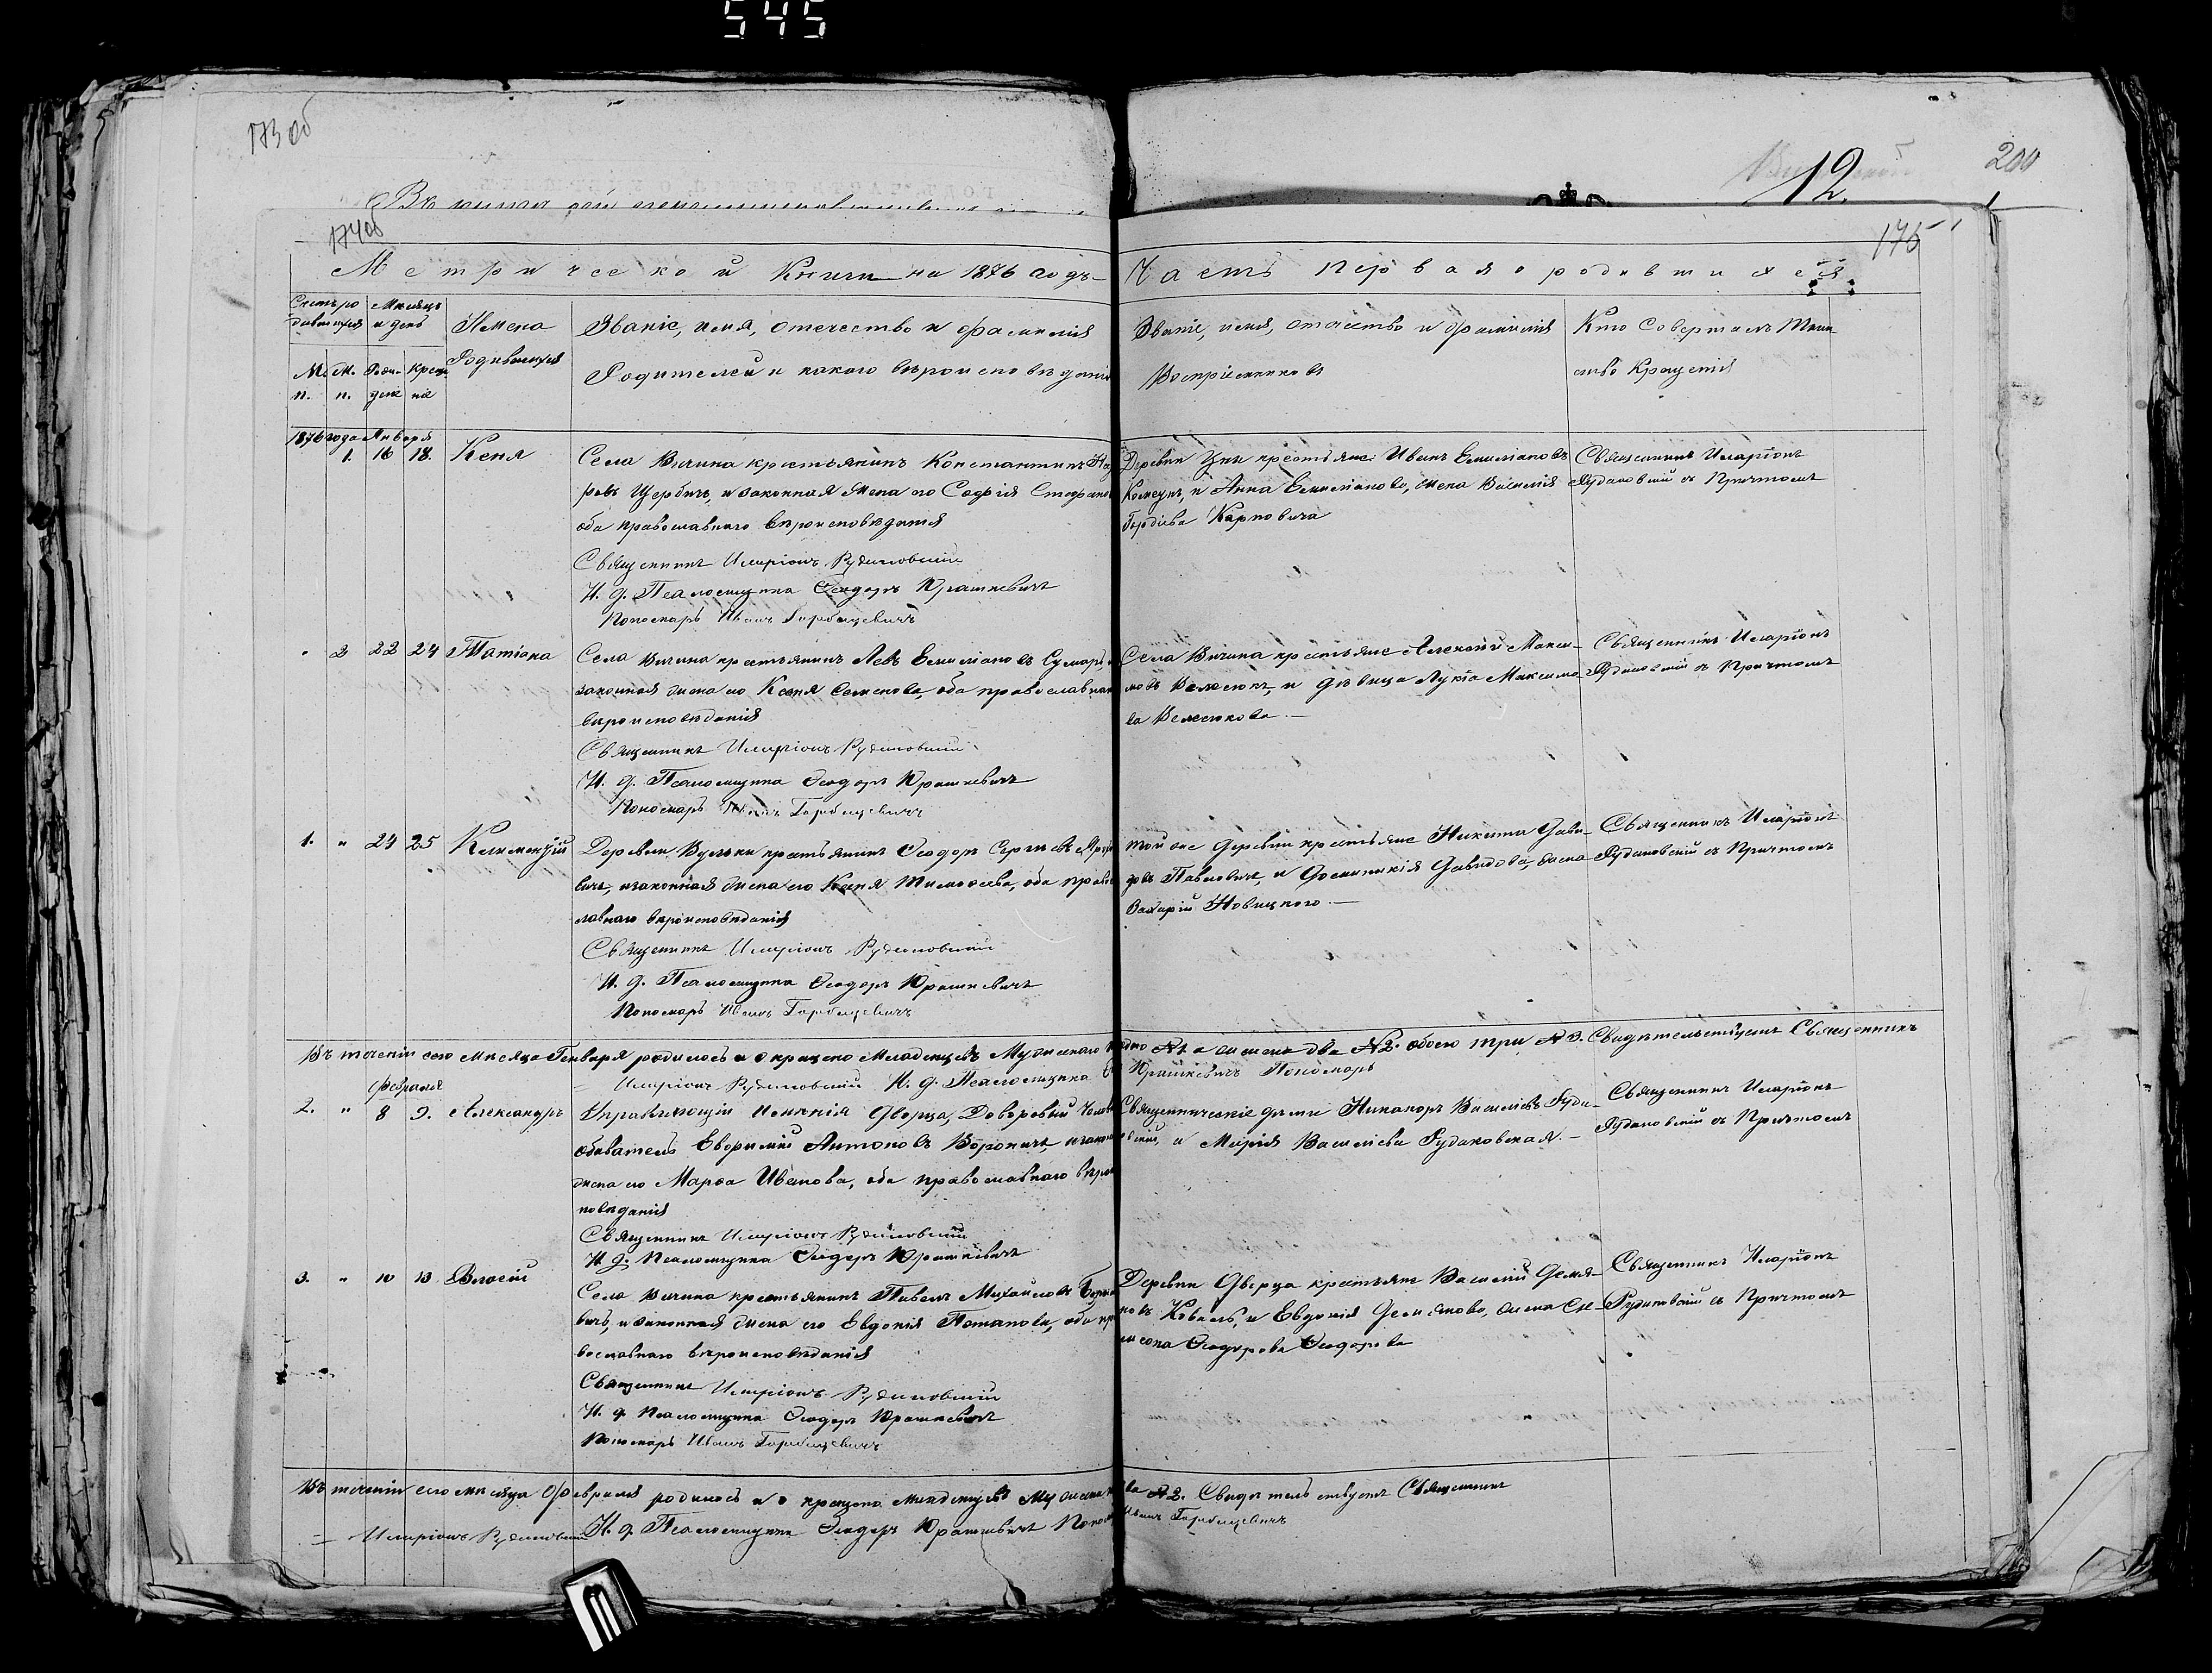 545
173 об
12.
200
174об
175
Метрической Книги на 1876 годъ
Часть первая о родившихся
Счетъ ро
дившихся
Месяцъ
и день
Имена
Родившихся
М. п.
Ж. п.
Рож-
дение
Креще
ние
Званіе, имя, отчество и фамилія
Родителей и какого вѣроисповѣданія
Званіе, имя, отчество и фамилія
Воспріемниковъ
Кто совершалъ Таин
ство Крещенія
1876 года Января
1. 16 18. Ксенія
Села Вичина крестьянинъ Константинъ
ровъ Щербичъ, и законная жена его Софія Стефано
оба православнаго вѣроисповѣданія
Священникъ Иларіонъ Рудаковский
И. д. Псаломщика Ѳеодоръ Юрашкевичъ
Пономарь Иванъ Горбацевичъ
Деревни Цны крестьяне Иванъ Емиліановъ
и Анна Емиліанова, жена Василія
Гордіева Карповича
Священникъ Иларіонъ
Рудаковскій съ Причтомъ
" 2 22 24 Татіана
Села Вичина крестьянинъ Левъ Емиліановъ
законная жена его Ксенія Семенова, оба православнаго
вѣроисповѣданія
Священникъ Иларіонъ Рудаковский
И. д. Псаломщика Ѳеодоръ Юрашкевичъ
Пономарь Иванъ Горбацевичъ
Села Вичина крестьяне Алексѣй Макси-
мовъ Велесюкъ, и дѣвица Лукія Максимо
ва Велесюкова.
Священникъ Иларіонъ
Рудаковский съ Причтомъ
1. " 24 25 Климентій
Деревни Вульки крестьянинъ Ѳеодоръ Сергіевъ
вичъ, и законная жена его Ксенія Тимоѳеева, оба право
славнаго вѣроисповѣданія
Священникъ Иларіонъ Рудаковский
И. д. Псаломщика Ѳеодоръ Юрашкевичъ
Пономарь Иванъ Горбацевичъ
той же деревни крестьяне Никита Дави-
довъ Павловичъ, и Доминикія Давидова, жена
Захарія Новицкого.
Священникъ Иларіонъ
Рудаковский съ Причтомъ
Въ теченіи сего месяца Генваря родилось и окрещено Младенцевъ Мужескаго
одно №1 а женска два №2. обоего три №3. Свидетельствуетъ Священникъ
Иларіонъ Рудаковский И. д. Псаломщика
Юрашкевичъ Пономарь
Февраля
2. " 8 9. Александръ
Управляющій имѣнія Дворца,
обыватель Евфимій Антоновъ Вороничъ, и закон
жена его Марѳа Иванова, оба православнаго вѣроис
повѣданія
Священникъ Иларіонъ Рудаковский
И. д. Псаломщика Ѳеодоръ Юрашкевичъ
Священническіе дѣти Никаноръ Василіевъ Руда-
ковскій, и Марія Василіева Рудаковская.
Священникъ Иларіонъ
Рудаковский съ Причтомъ
3. " 10 13. Власій
Села Вичина крестьянинъ Павелъ Михайловъ
вичъ, и законная жена его Евдокія Потапова, оба пра
вославнаго вѣроисповѣданія
Священникъ Иларіонъ Рудаковский
И. д. Псаломщика Ѳеодоръ Юрашкевичъ
Пономарь Иванъ Горбацевичъ
Деревни Дворца крестьяне Василій Демя-
новъ Коваль, и Евдокія Демянова, жена Си-
меона Ѳеодорова
Священникъ Иларіонъ
Рудаковский съ Причтомъ
Въ теченіи сего месяца Февраля родилось и окрещено младенцевъ Мужеска
два №2. Свидетельствуетъ Священникъ
Иларіонъ Рудаковский И. д. Псаломщика Ѳеодоръ Юрашкевичъ
Иванъ Горбацевичъ